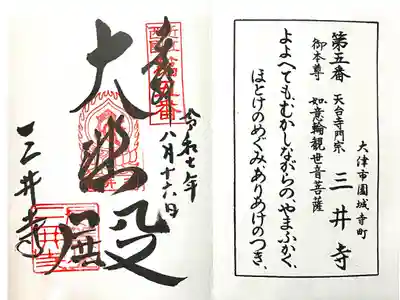 大津市園城寺町
第五番 天台寺門宗 三井寺
御本尊 如意輪観世音菩薩
よよへても、むかしながらの、やまふかく、
ほとけのめぐみ、ありあけのつき、
令和七年
八月十六日
奉拝
大悲殿
三井寺